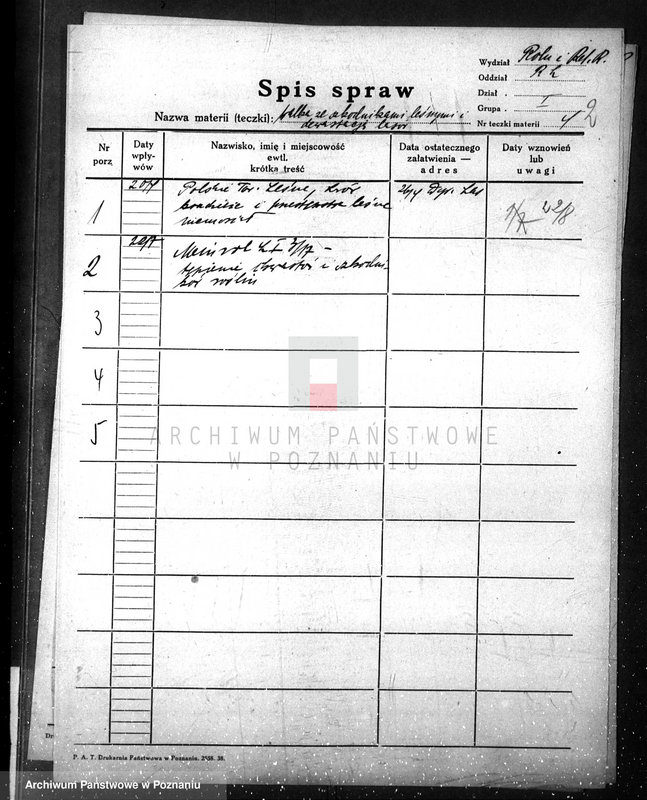 Wydział Roln i Ref. R.
Oddział RL
Dział . I
Grupa .
Nr teczki materii 4
2
Spis spraw
Nazwa materii (teczki): walka ze szkodnikami leśnymi i
dewastacją lasów
Nr
porz
Daty
wpły-
wów
Nazwisko, imię i miejscowość
ewtl.
krótka treść
Data ostatecznego
załatwienia —
adres
Daty wznowień
lub
uwagi
1
Polskie Tow. Leśne, Lwów
kradzieże i leśne
memoriał
2
Min rol L I
tępienie chwastów i szkodni-
ków roślin
3
4
5
ARCHIWUM PAŃSTWOWE
W POZNANIU
P. A. T. Drukarnia Państwowa w Poznaniu. 38.
Archiwum Państwowe w Poznaniu